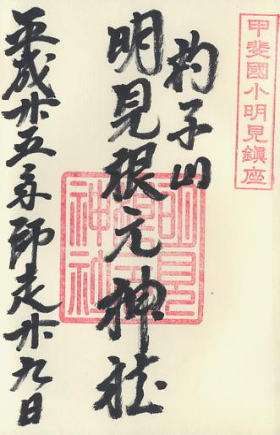 甲斐國小明見鎮座
杓子山
明見根元神社
明見
神社
平成廿五年師走廿九日